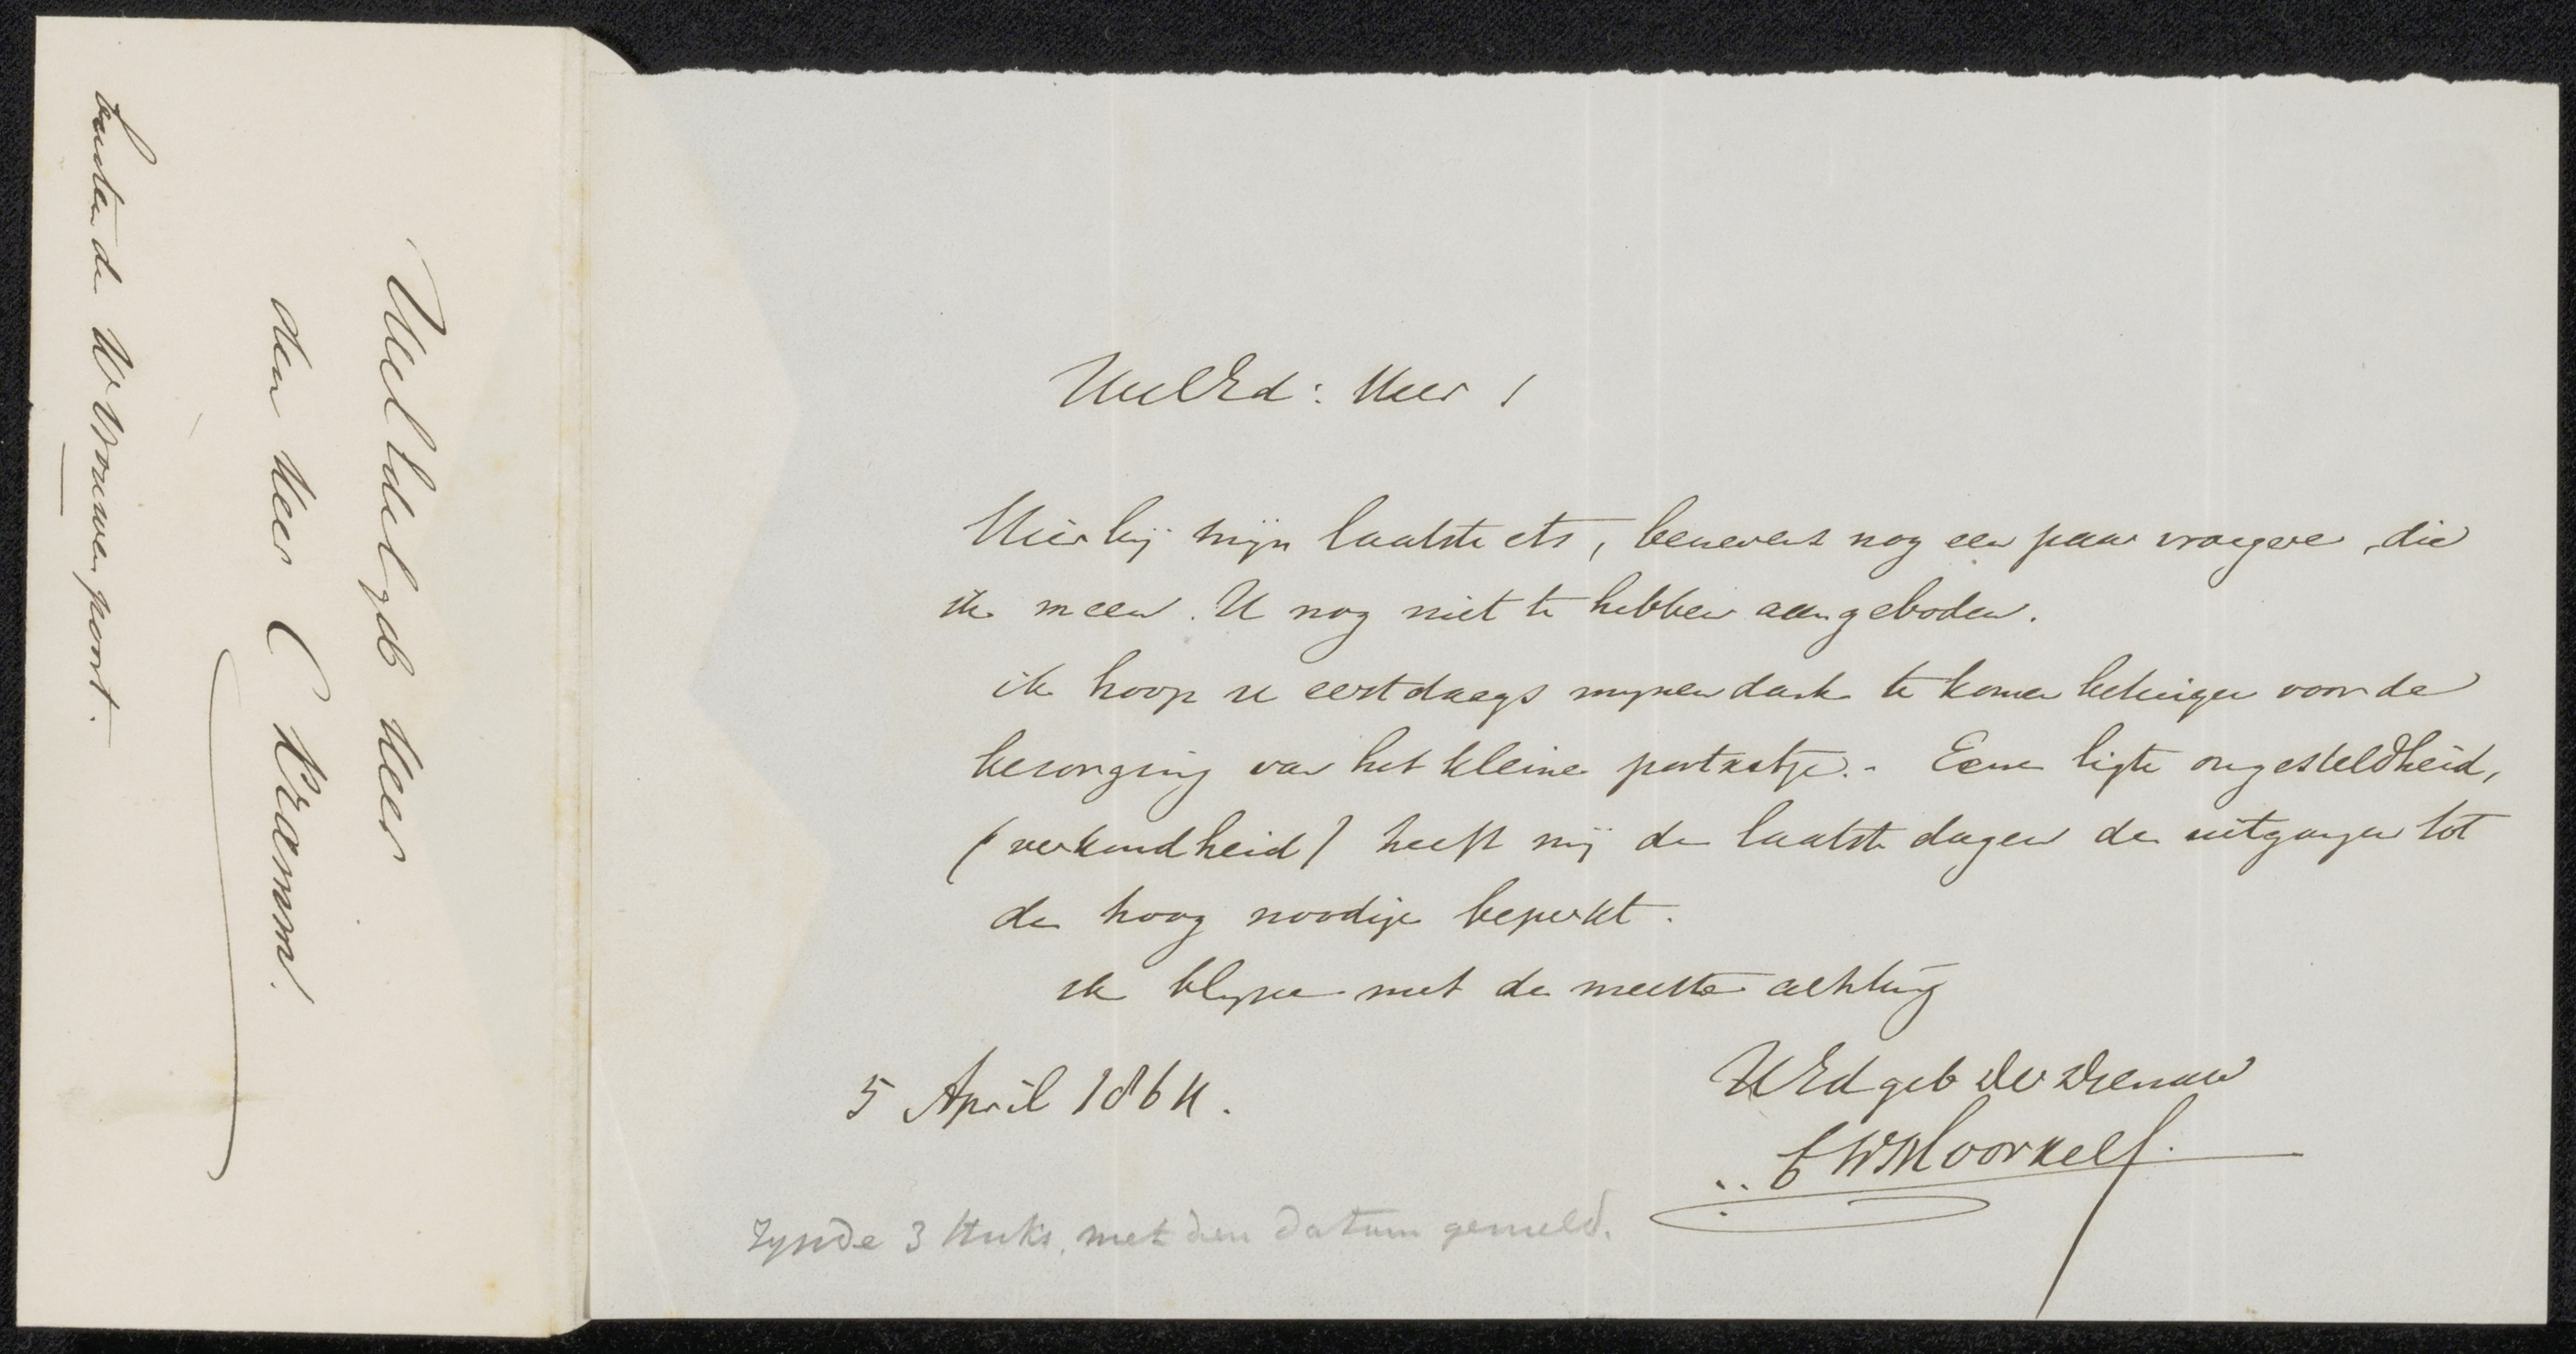 WelEdelgeb Heer
den Heer C Kramm.
buiten de W Vrouwen poort.
WelEd: Heer !
Hierbij mijn laatste ets, benevens nog een paar vroegere, die
ik meen U nog niet te hebben aangeboden.
ik hoop u eerstdaags mynen dank te komen betuigen voor de
bezorging van het kleine portretje. - Eene ligte ongesteldheid,
(verkoudheid) heeft mij de laatste dagen de uitgangen tot
de hoog noodige beperkt.
ik blyve met de meeste achting
UEdgeb Dw Dienaar
5 April 1864.
Zynde 3 stuks, met den datum gemeld.